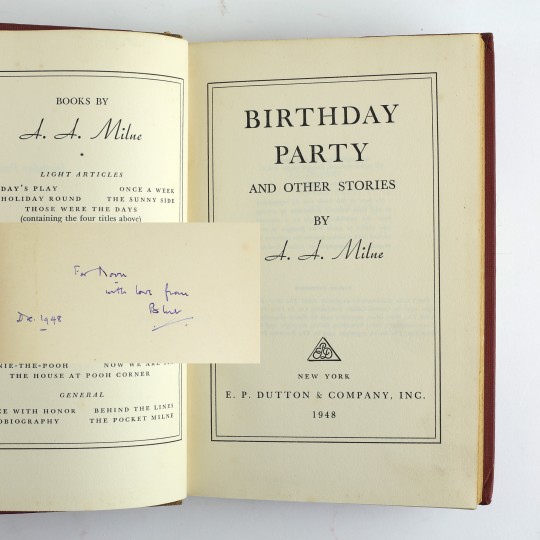 BOOKS BY
A. A. Milne
LIGHT ARTICLES
DAY'S PLAY ONCE A WEEK
HOLIDAY ROUND THE SUNNY SIDE
THOSE WERE THE DAYS
(containing the four titles above)
For Moon
with love from
Blue
Dec. 1948
NIE-THE-POOH NOW WE ARE
THE HOUSE AT POOH CORNER
GENERAL
CE WITH HONOR BEHIND THE LINES
OBIOGRAPHY THE POCKET MILNE
BIRTHDAY
PARTY
AND OTHER STORIES
BY
A. A. Milne
NEW YORK
E. P. DUTTON & COMPANY, INC.
1948